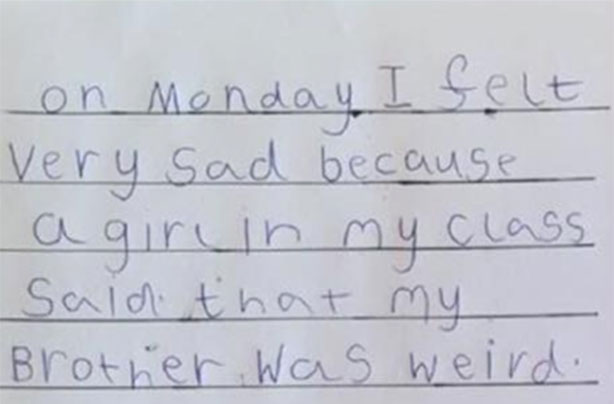 on Monday I felt
Very sad because
a girl in my class
Said that my
Brother was weird.